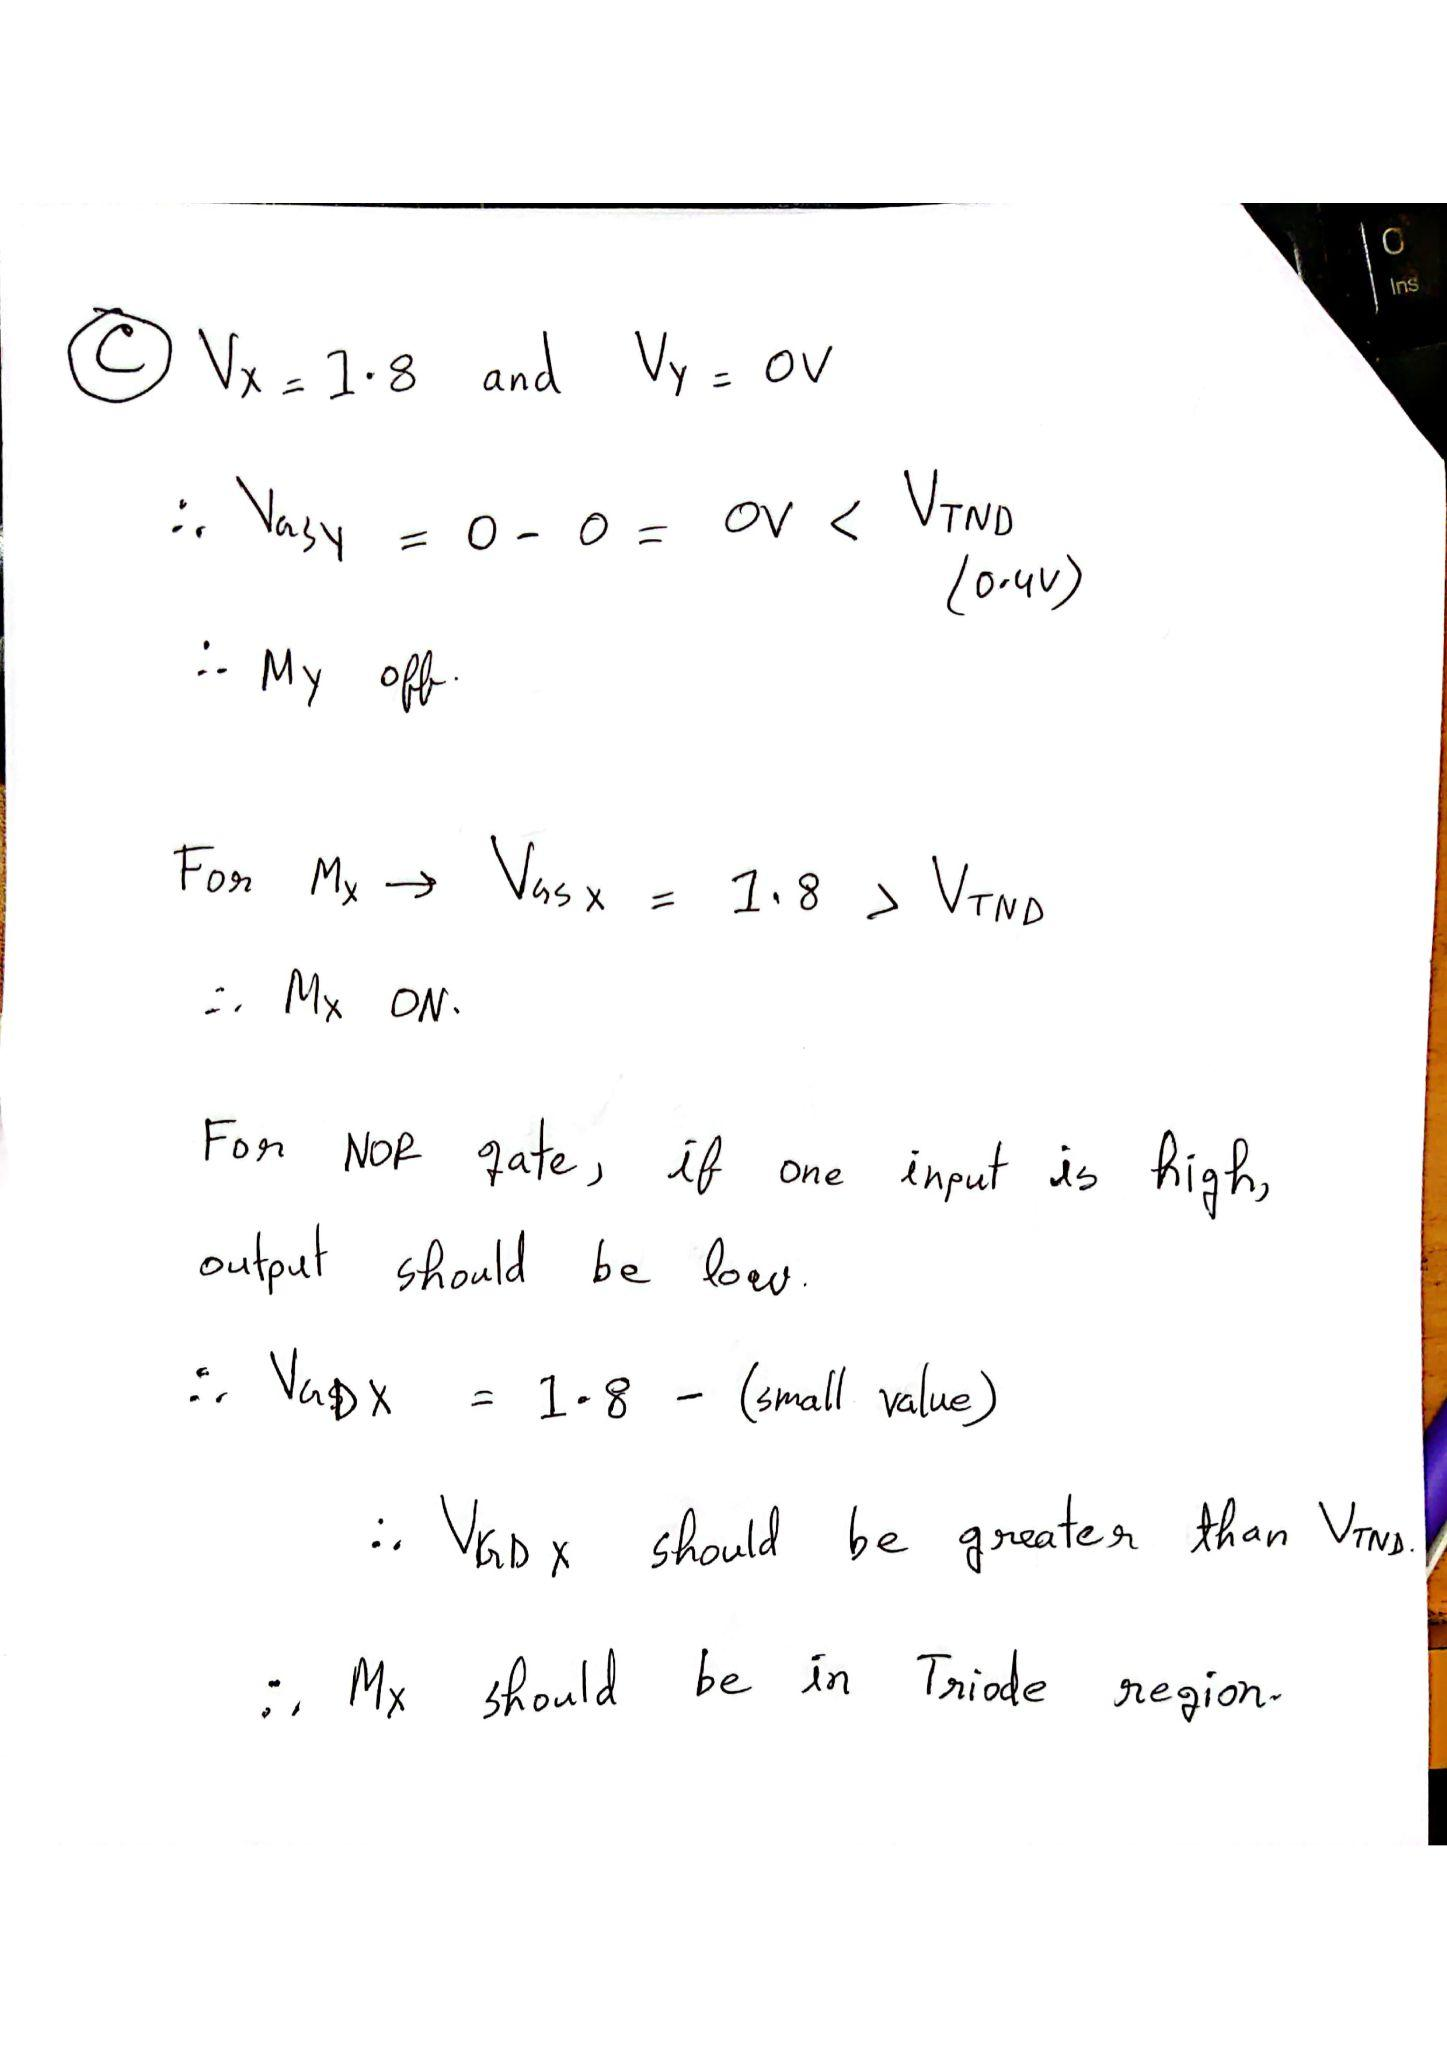 O
Ins
Ⓒ Vx = 1.8 and Vy = 0V
∴ VGSY = 0 - 0 = 0V < VTND
(0.4V)
∴ My off.
For Mx → VGSX = 1.8 > VTND
∴ Mx ON.
For NOR gate, if one input is high,
output should be low.
∴ VGDX = 1.8 - (small value)
∴ VGDX should be greater than VTND.
∴ Mx should be in Triode region.